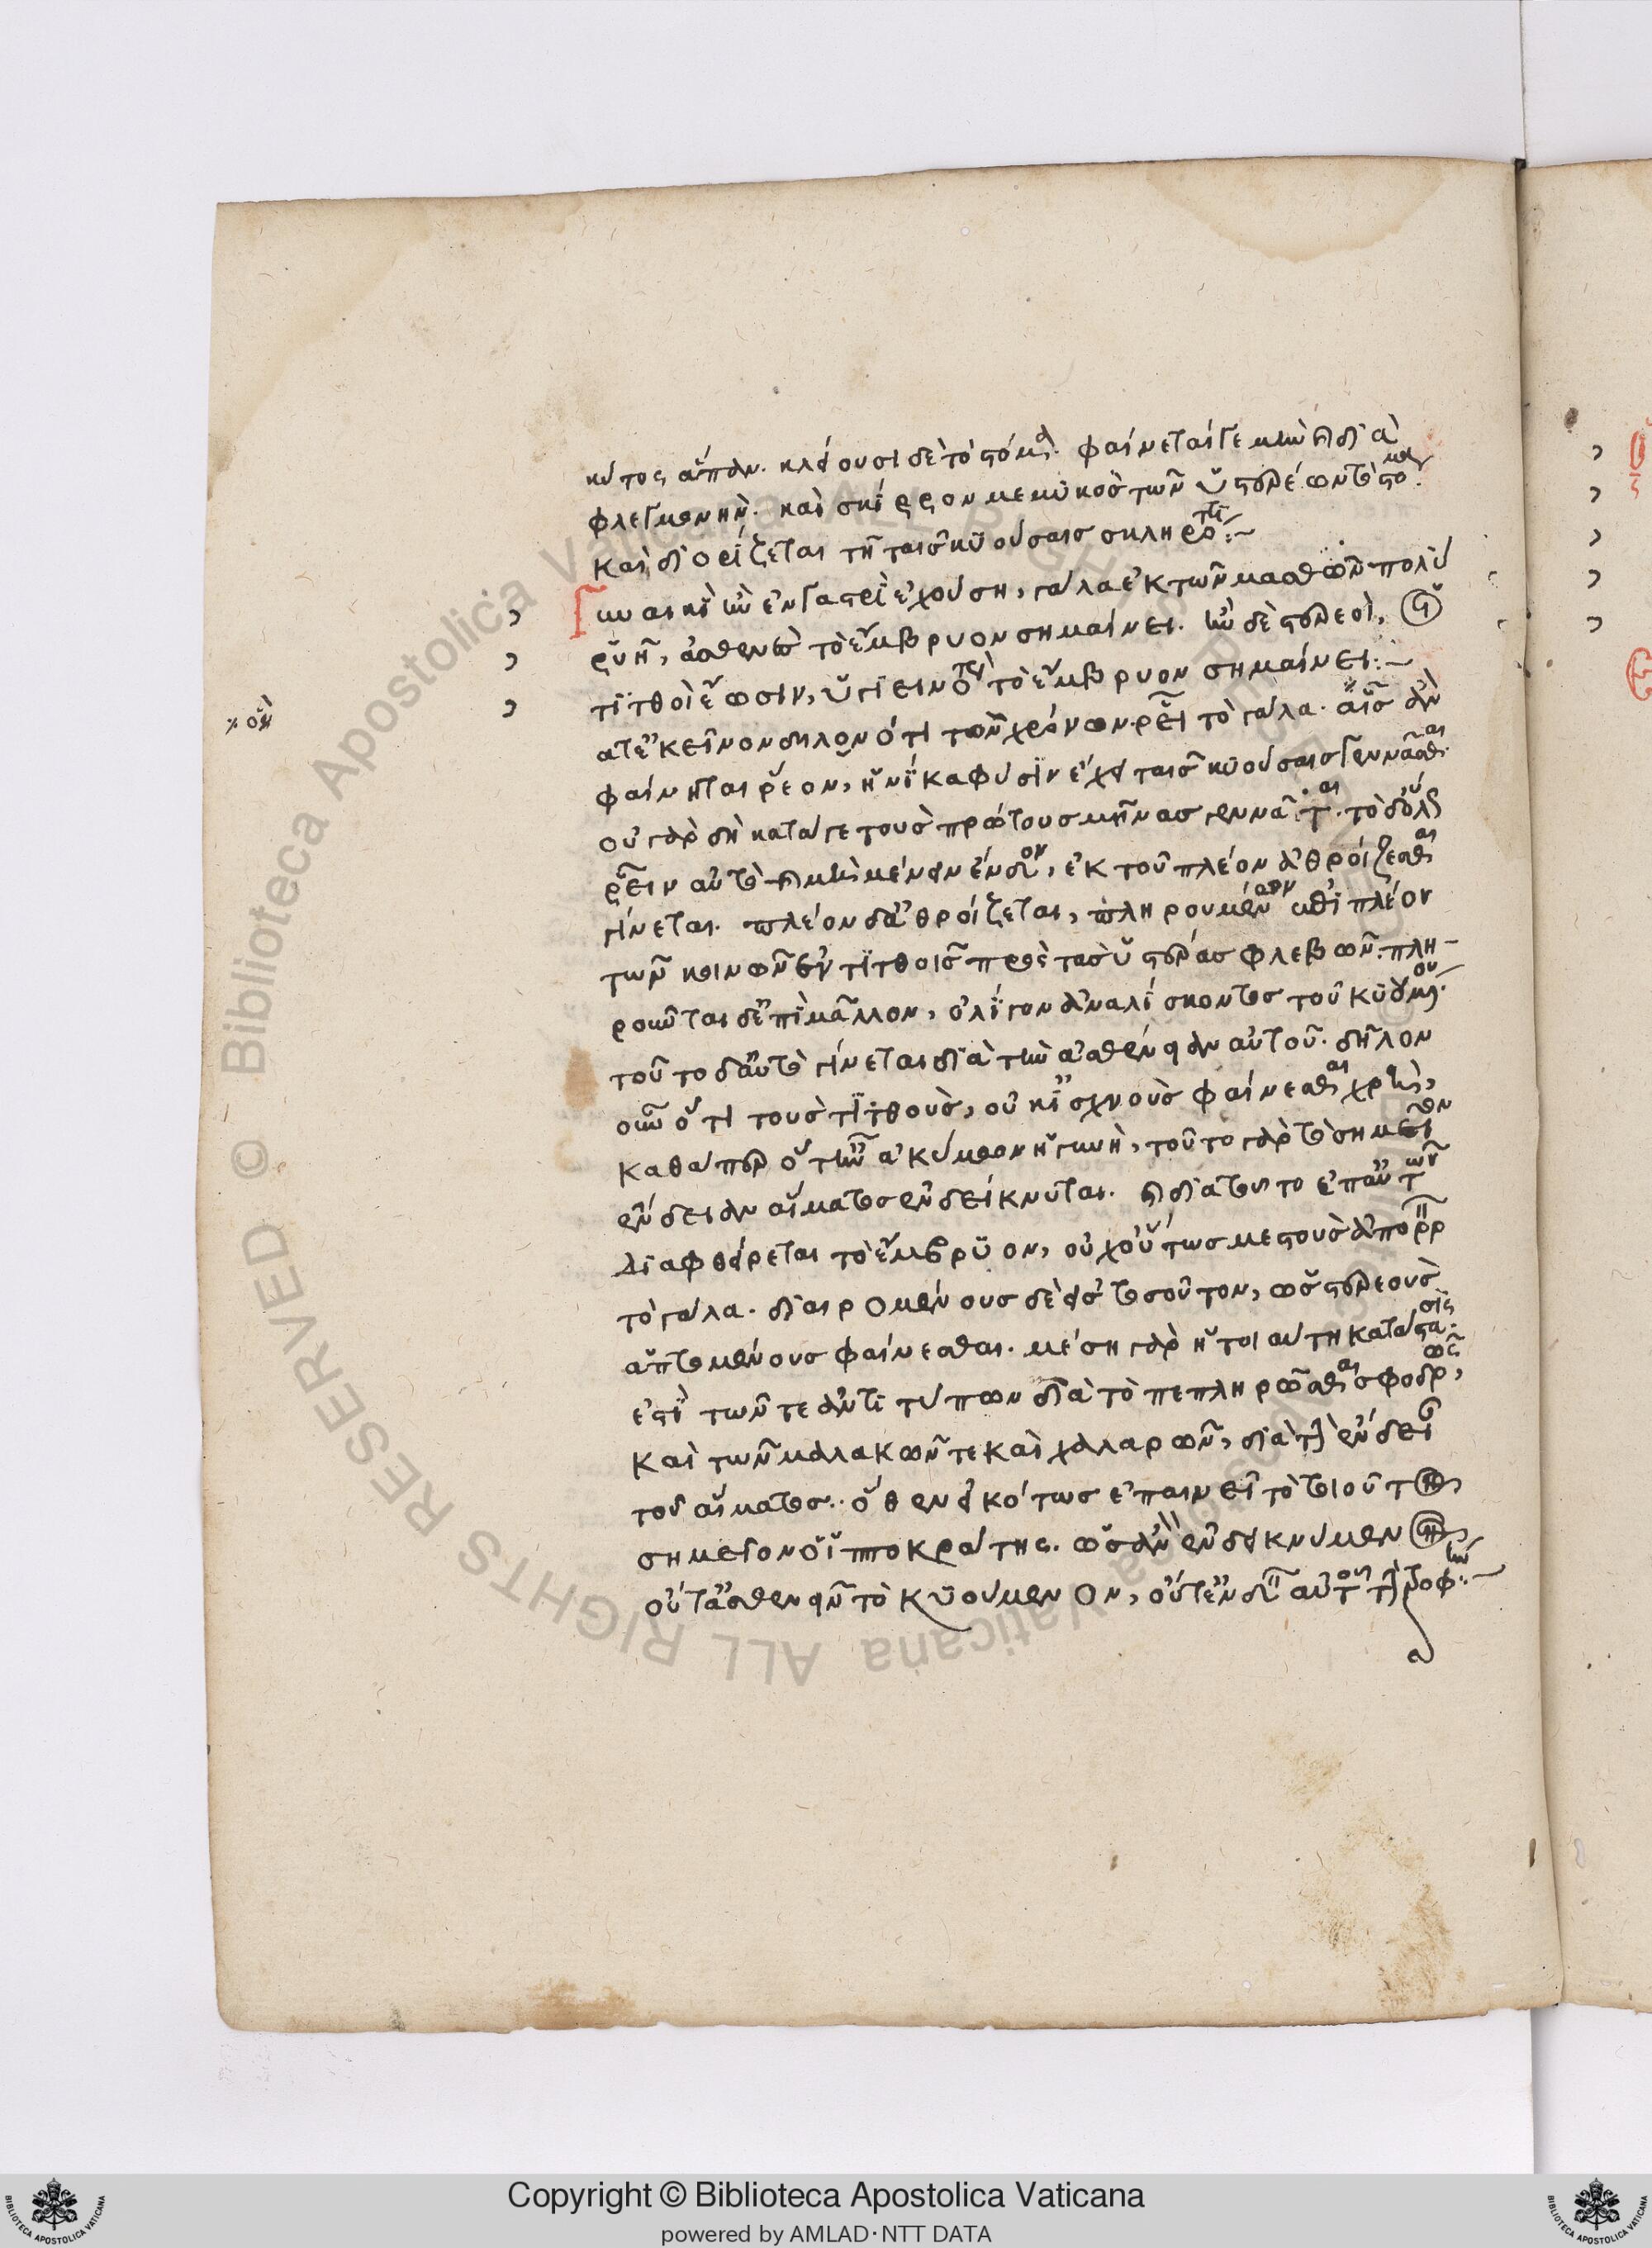 κύτος ἅπαν. κλείουσι δὲ τὸ στόμα. φαίνεται γε μὴν καὶ διὰ
φλεγμονὴν. καὶ σκίρρον μεμυκὸς τῶν ὑστερέων τὸ στόμα.
καὶ διορίζεται τῆ ταῖς κυούσαις σκληρότητι:~
Γυναικὶ ἢν ἐν γαστρὶ ἐχούση, γάλα ἐκ τῶν μασθῶν πολὺ
ῥυῆ, ἀσθενὲς τὸ ἔμβρυον σημαίνει. ἢν δὲ στερεοὶ, οἱ
τιτθοὶ ἔωσιν, ὑγιεινότερον τὸ ἔμβρυον σημαίνει:~
ατ' ἐκεῖνον δηλονότι τὸν χρόνον ῥεῖ τὸ γάλα. αἷς ἂν
φαίνηται ῥέον, ἡνίκα φύσιν ἔχει ταῖς κυούσαις γεννᾶσθαι.
οὐ γὰρ δὴ κατά γε τοὺς πρώτους μῆνας γεννᾶται. τὸ δ' οὖν
ῥεῖν αὐτὸ καὶ μὴ μένειν ἔνδον, ἐκ τοῦ πλέον ἀθροίζεσθαι
γίνεται. πλέον δ' ἀθροίζεται, πληρουμένων ἐπὶ πλέον
τῶν κοινῶν ἐν τιτθοῖς πρὸς τὰς ὑστέρας φλεβῶν. πλη-
ροῦνται δ' ἐπὶ μᾶλλον, ὀλίγον ἀναλίσκοντος τοῦ κυουμένου.
τοῦτο δ' αὐτὸ γίνεται διὰ τὴν ἀσθένειαν αὐτοῦ. δῆλον
οὖν ὅτι τοὺς τιτθοὺς, οὐκ ἰσχνοὺς φαίνεσθαι χρὴ,
καθάπερ ὅταν ἀκύμων ἡ γυνὴ, τοῦτο γὰρ τὸ σημεῖον
ἔνδειαν αἵματος ἐνδείκνυται. καὶ διὰ τοῦτο ἐπ' αὐτῶν
διαφθείρεται τὸ ἔμβρυον, οὐχ οὕτως μεστοὺς ἀπορρεῖν
τὸ γάλα. διαιρομένους δὲ εἰς τοσοῦτον, ὡς στερεοὺς
ἁπτομένους φαίνεσθαι. μέση γὰρ ἤτοι αὕτη κατάστασίς
ἐστι τῶν τε ἀντιτύπων διὰ τὸ πεπληρῶσθαι σφοδρῶς,
καὶ τῶν μαλακῶν τε καὶ χαλαρῶν, διὰ τὴν ἔνδειαν
τοῦ αἵματος. ὅθεν εἰκότως ἐπαινεῖ τὸ τοιοῦτον
σημεῖον ὁ ἱπποκράτης. ὡς ἂν ἐνδεικνύμενον
οὔτ' ἀσθενεῖν τὸ κυούμενον, οὔτ' ἐνδεῖν αὐτοῦ τὴν τροφήν:~
※ οὖν